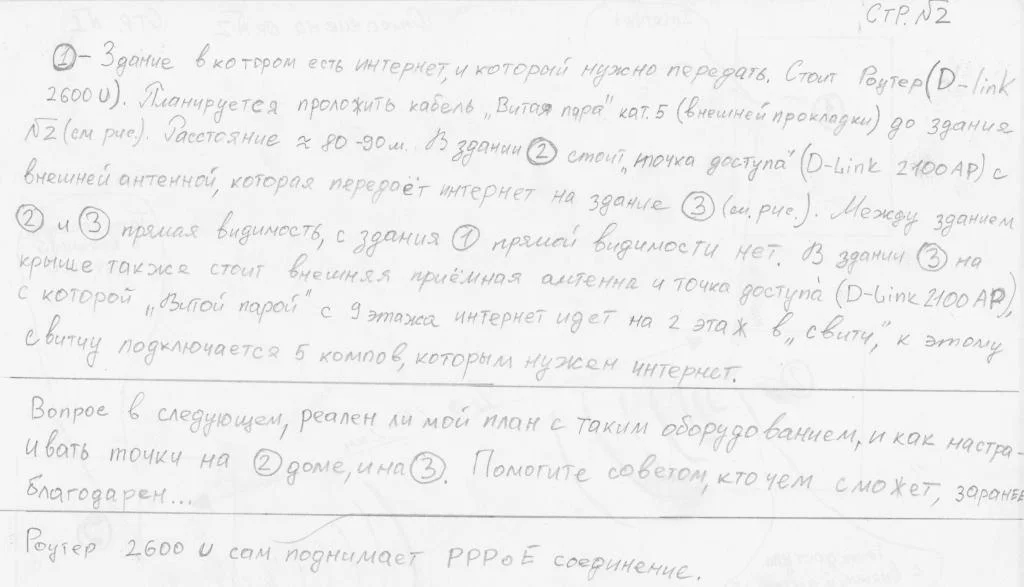 СТР. №2
① - Здание в котором есть интернет, и который нужно передать. Стоит Роутер (D-link
2600 U). Планируется проложить кабель „Витая пара" кат. 5 (внешней прокладки) до здания
№2 (см рис.). Расстояние ≈ 80-90м. В здании ② стоит „точка доступа" (D-Link 2100 AP) с
внешней антенной, которая передаёт интернет на здание ③ (см. рис.). Между зданием
② и ③ прямая видимость, с здания ① прямой видимости нет. В здании ③ на
крыше также стоит внешняя приёмная антенна и точка доступа (D-Link 2100 AP),
с которой „Витой парой" с 9 этажа интернет идет на 2 этаж в „свитч", к этому
свитчу подключается 5 компов, которым нужен интернет.
Вопрос в следующем, реален ли мой план с таким оборудованием, и как настра-
ивать точки на ② доме, и на ③. Помогите советом, кто чем сможет, заранее
благодарен...
Роутер 2600 U сам поднимает PPPoE соединение.